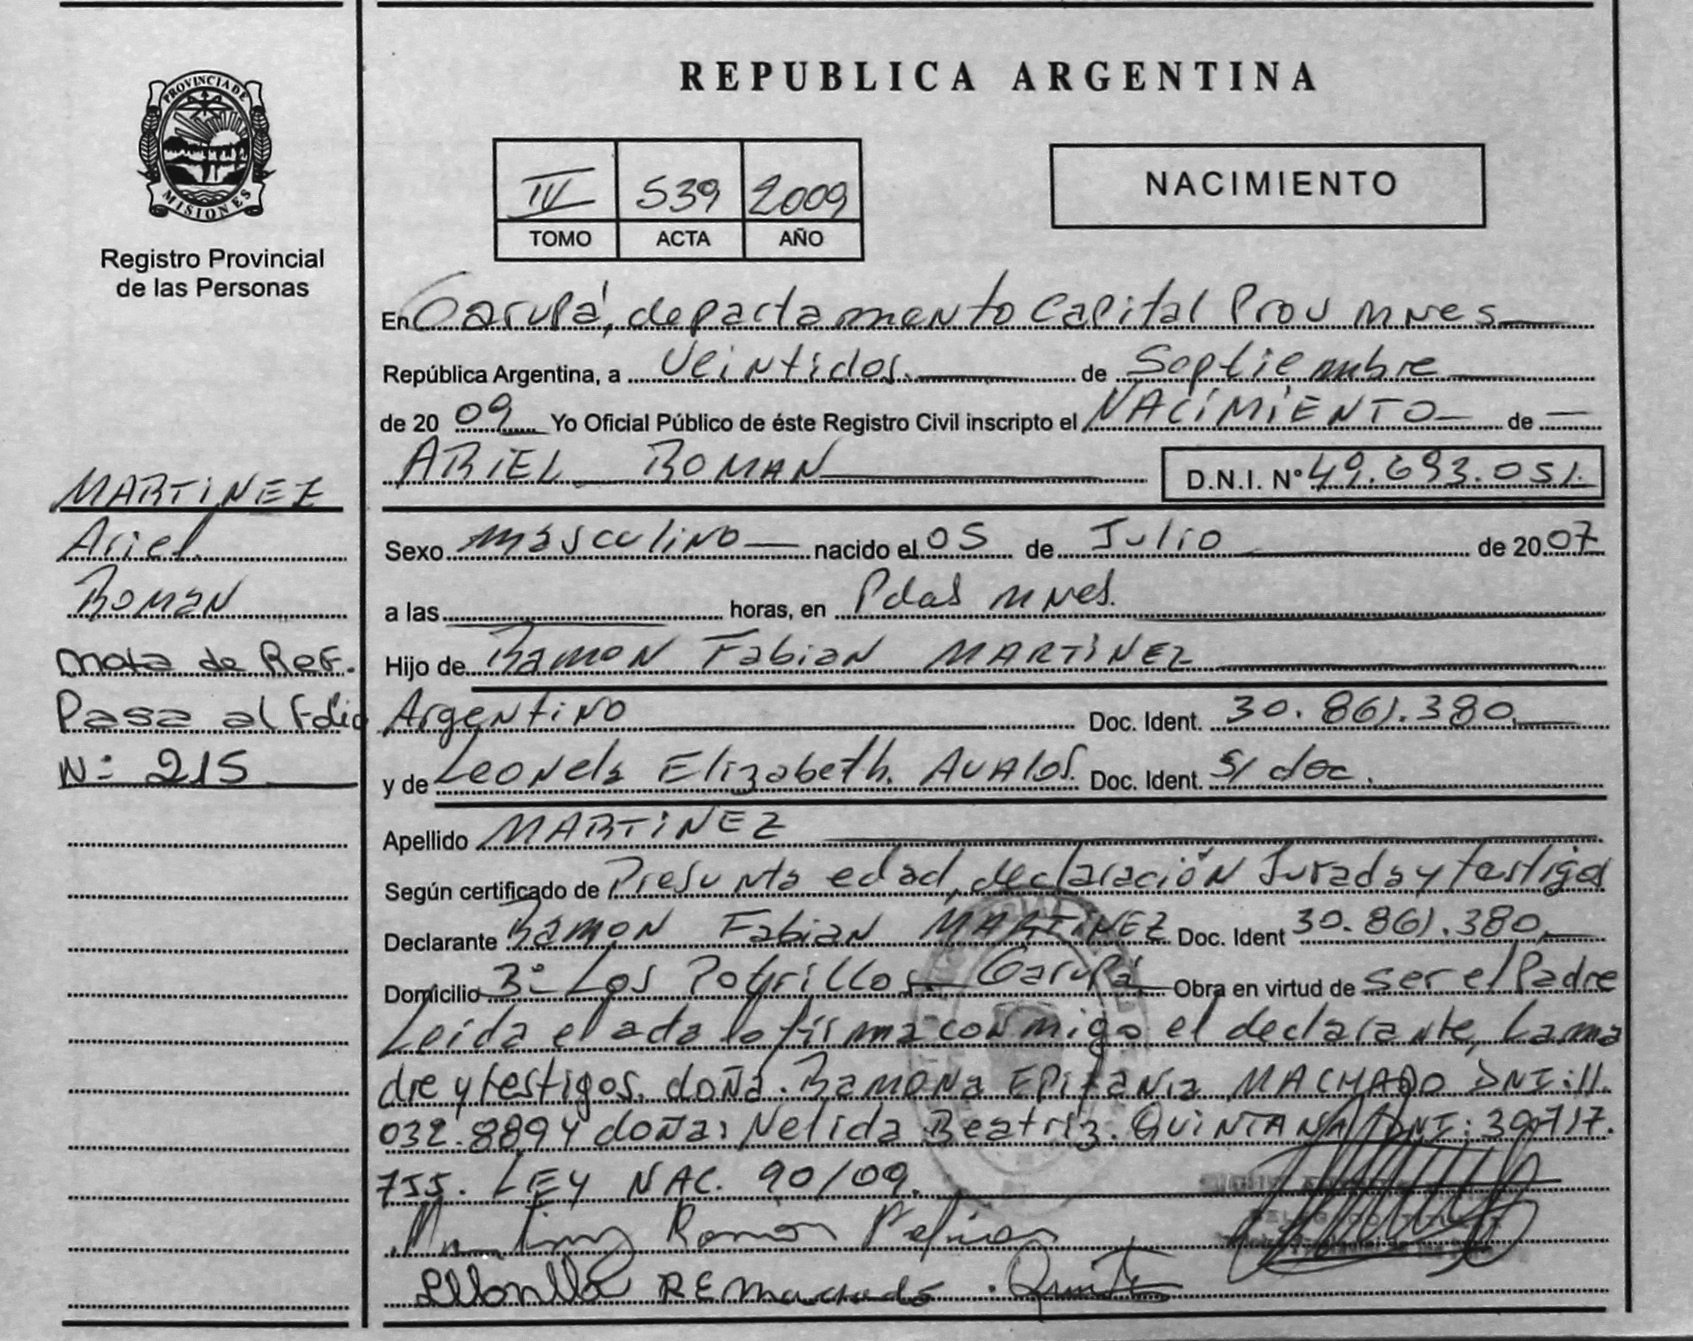 PROVINCIA DE
MISIONES
Registro Provincial
de las Personas
MARTINEZ
Ariel
Roman
Nota de Ref.
Pasa al Folio
N: 215
REPUBLICA ARGENTINA
IV 539 2009
TOMO ACTA AÑO
NACIMIENTO
En Garupá, departamento Capital Prov Mnes
República Argentina, a Veintidos de Septiembre
de 20 09 Yo Oficial Público de éste Registro Civil inscripto el NACIMIENTO de
ARIEL ROMAN D.N.I. N° 49.693.051.
Sexo masculino nacido el 05 de Julio de 20 07
a las horas, en Pdas Mnes.
Hijo de Ramon Fabian MARTINEZ
Argentino Doc. Ident. 30.861.380
y de Leonela Elizabeth. AVALOS. Doc. Ident. S/ doc.
Apellido MARTINEZ
Según certificado de Presunta edad, declaración Jurada y testigos
Declarante Ramon Fabian MARTINEZ Doc. Ident 30.861.380
Domicilio B° Los Potrillos Garupá Obra en virtud de ser el Padre
Leida el acta lo firma conmigo el declarante, La ma
dre y testigos. doña. Ramona Epifania MACHADO DNI: 11.
032.889 y doña: Nelida Beatriz. QUINTANA DNI: 30.717.
755. LEY NAC. 90/09.
Ramon
RE Machado